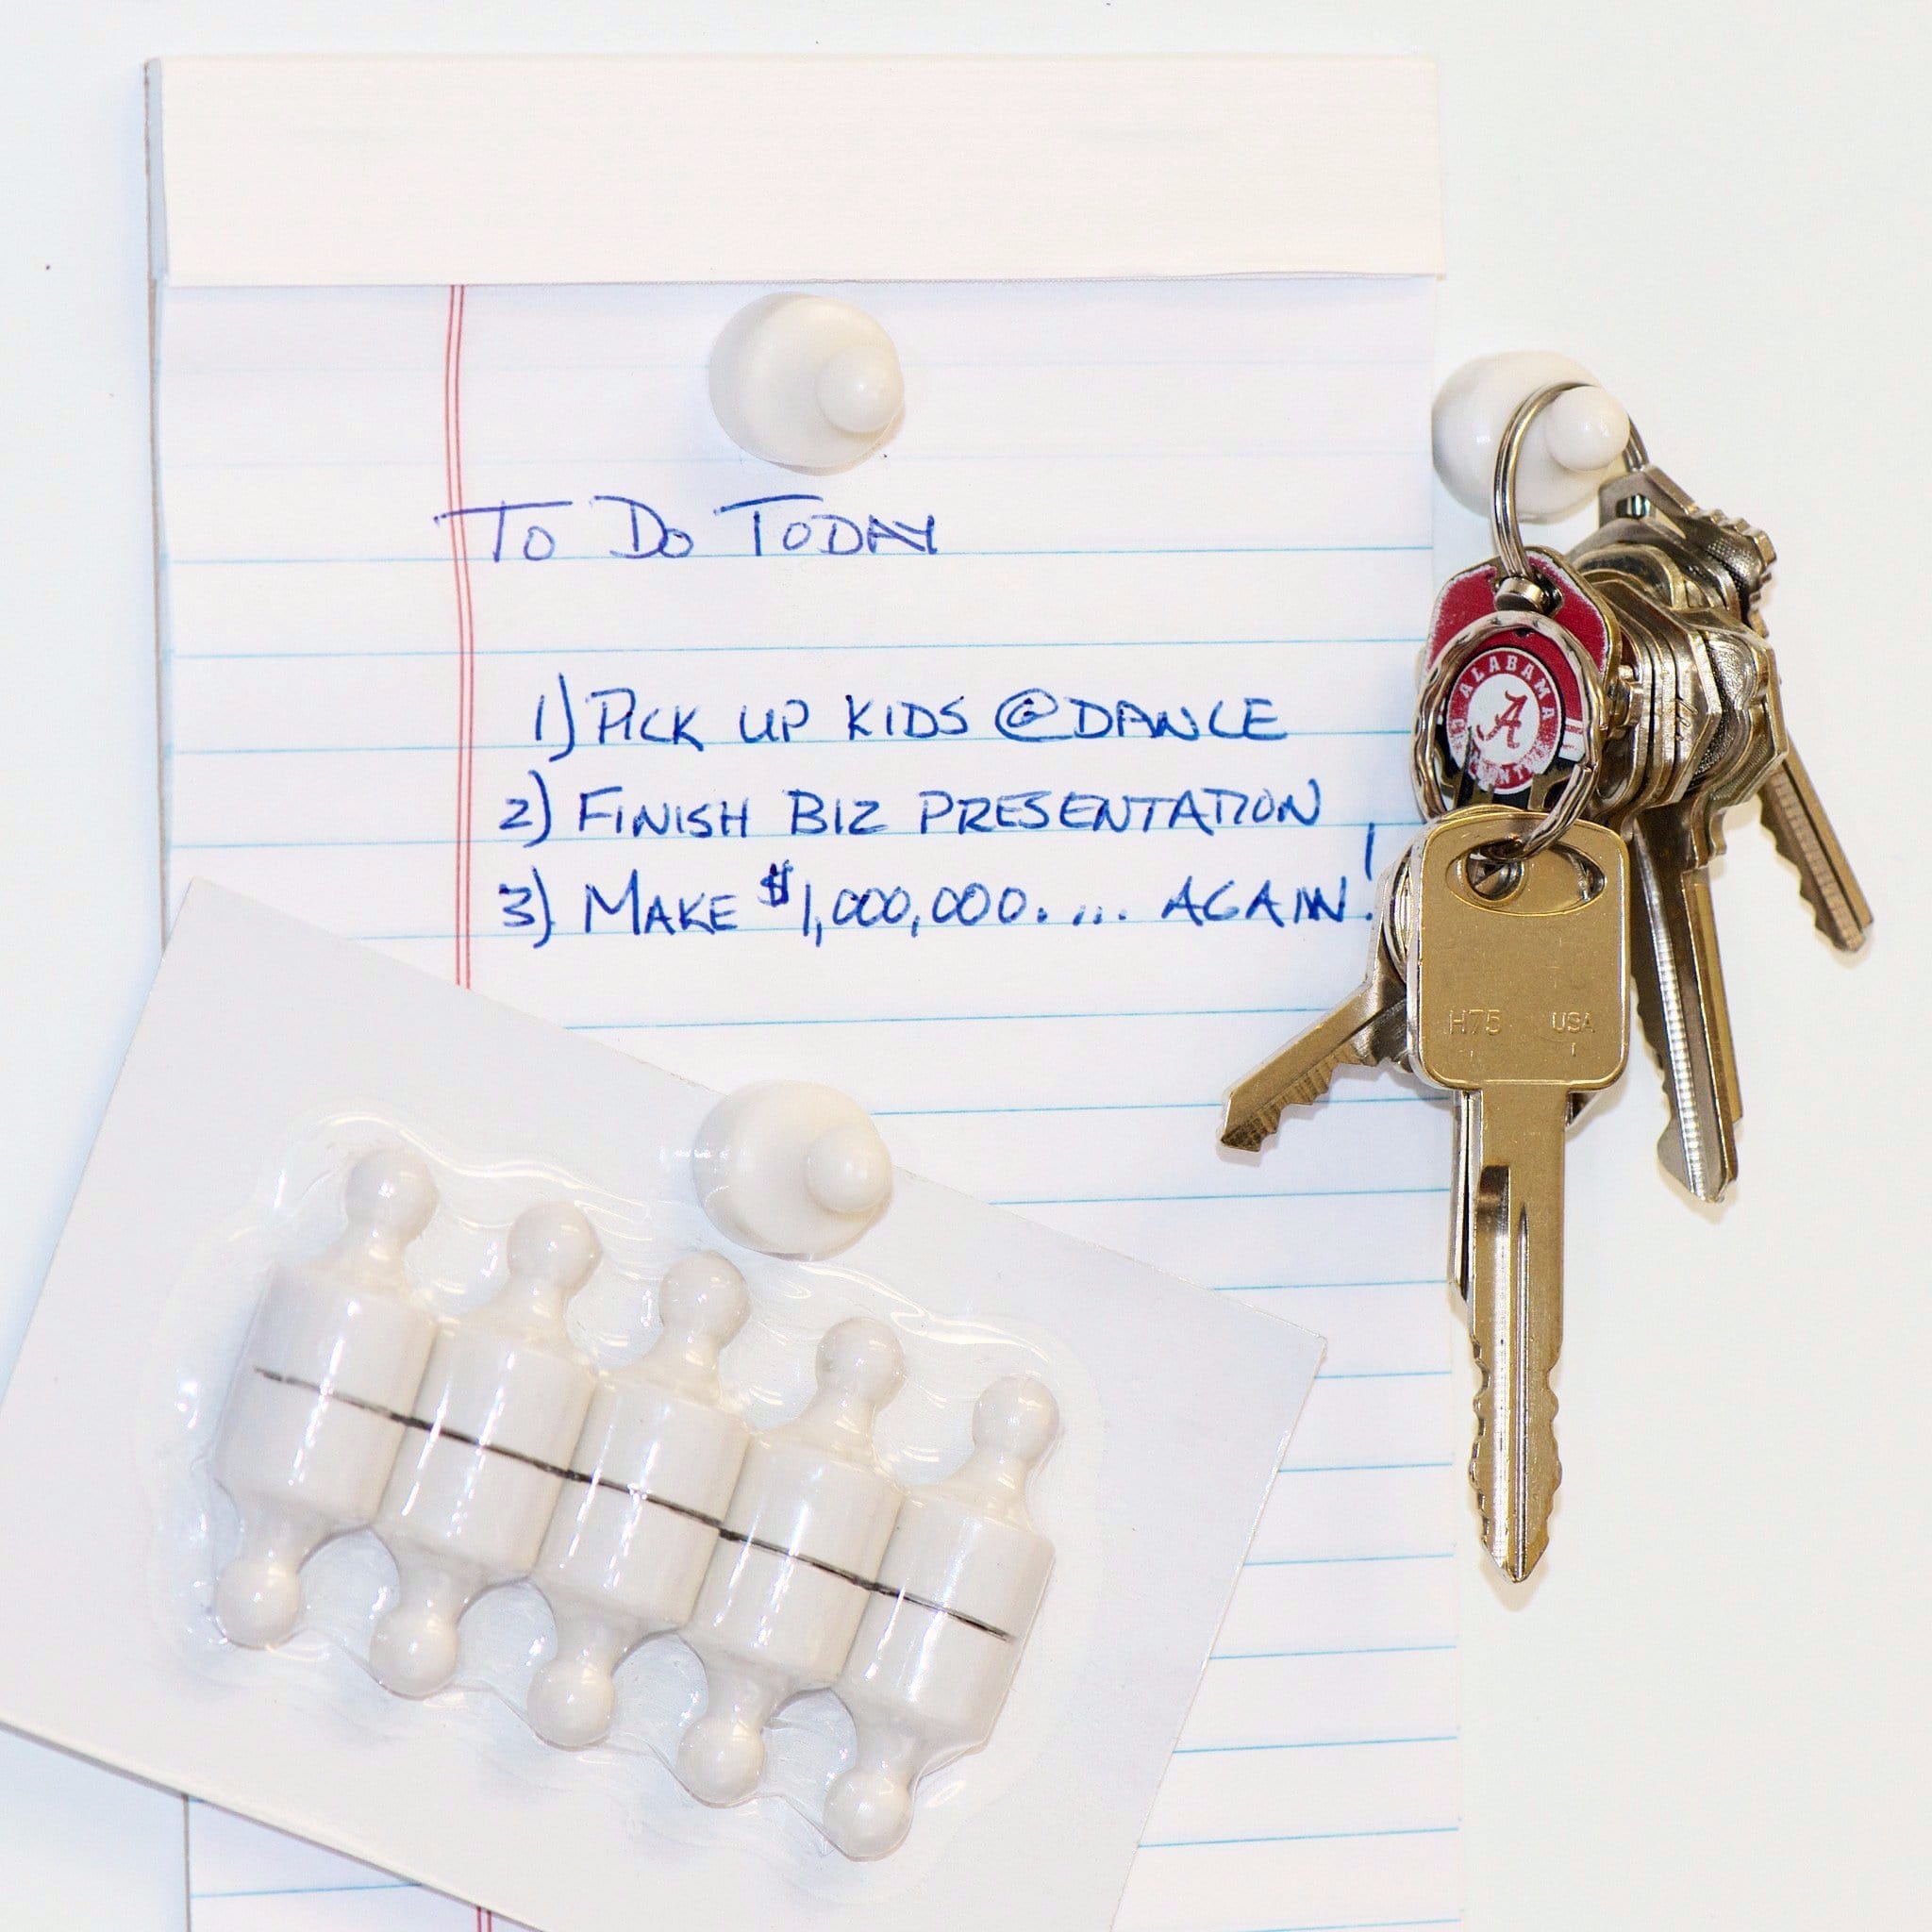 To Do Today
1) PICK UP KIDS @ DANCE
2) FINISH BIZ PRESENTATION
3) MAKE $1,000,000. ... AGAIN!
ALABAMA
A
H75 USA